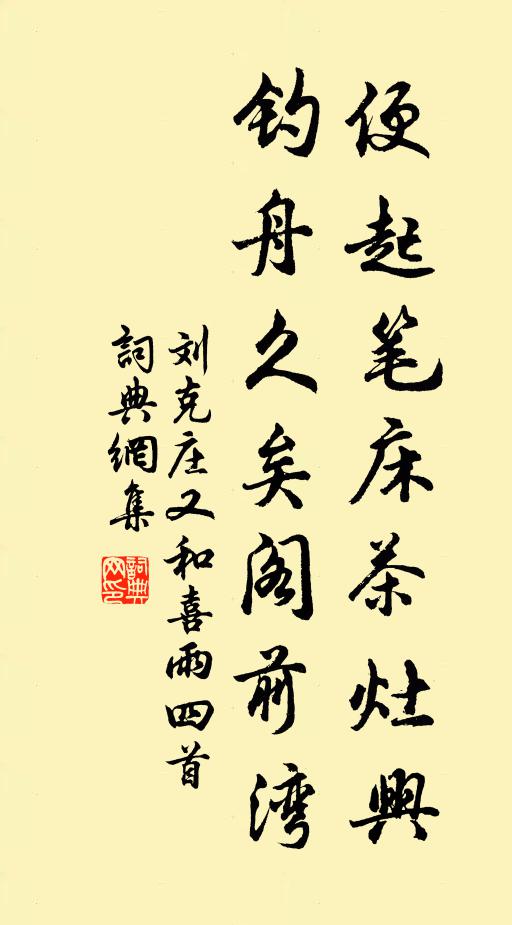 便起笔床茶灶興
钓舟久矣阁前湾
刘克庄又和喜雨四首
詞典網集
詞典网印